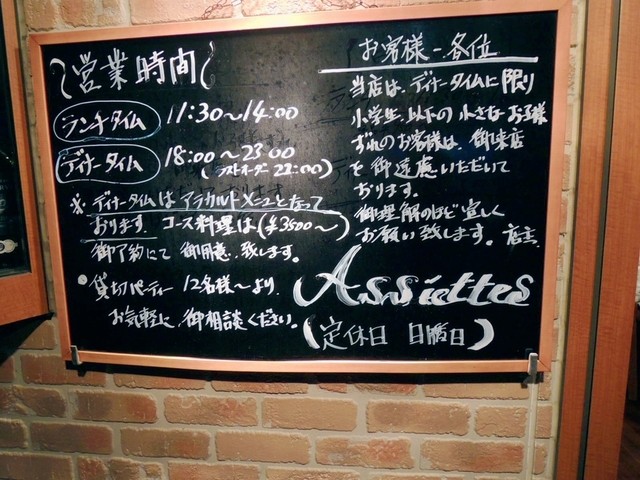 営業時間
ランチタイム 11:30〜14:00
ディナータイム 18:00〜23:00
(ラストオーダー 22:00)
※ ディナータイムはアラカルトメニューとなって
おります。コース料理は(¥3500〜)
御予約にて御用意致します。
● 貸切パーティー 12名様〜より、
お気軽に御相談ください。
お客様各位
当店は、ディナータイムに限り
小学生以下の小さなお子様
ずれのお客様は、御来店
を御遠慮いただいて
おります。
御理解のほど宜しく
お願い致します。店主
Assiettes
(定休日 日曜日)